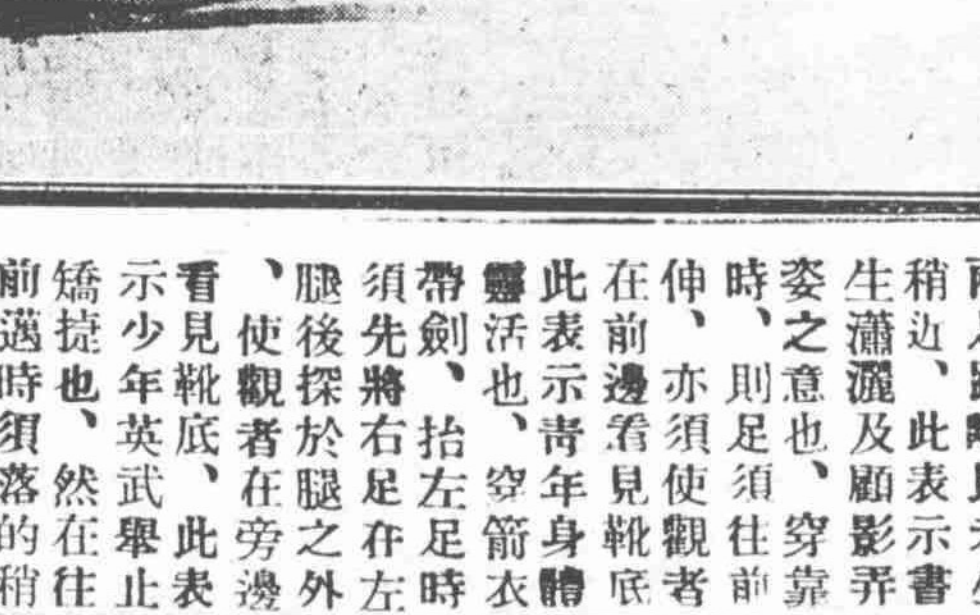 稍近、此表示書
生瀟灑及顧影弄
姿之意也、穿靠
時、則足須往前
伸、亦須使觀者
在前邊看見靴底
此表示靑年身體
靈活也、空箭衣
帶劍、抬左足時
須先將右足在左
腿後探於腿之外
、使觀者在旁邊
看見靴底、此表
示少年英武舉止
矯捷也、然在往
前邁時須落的稍